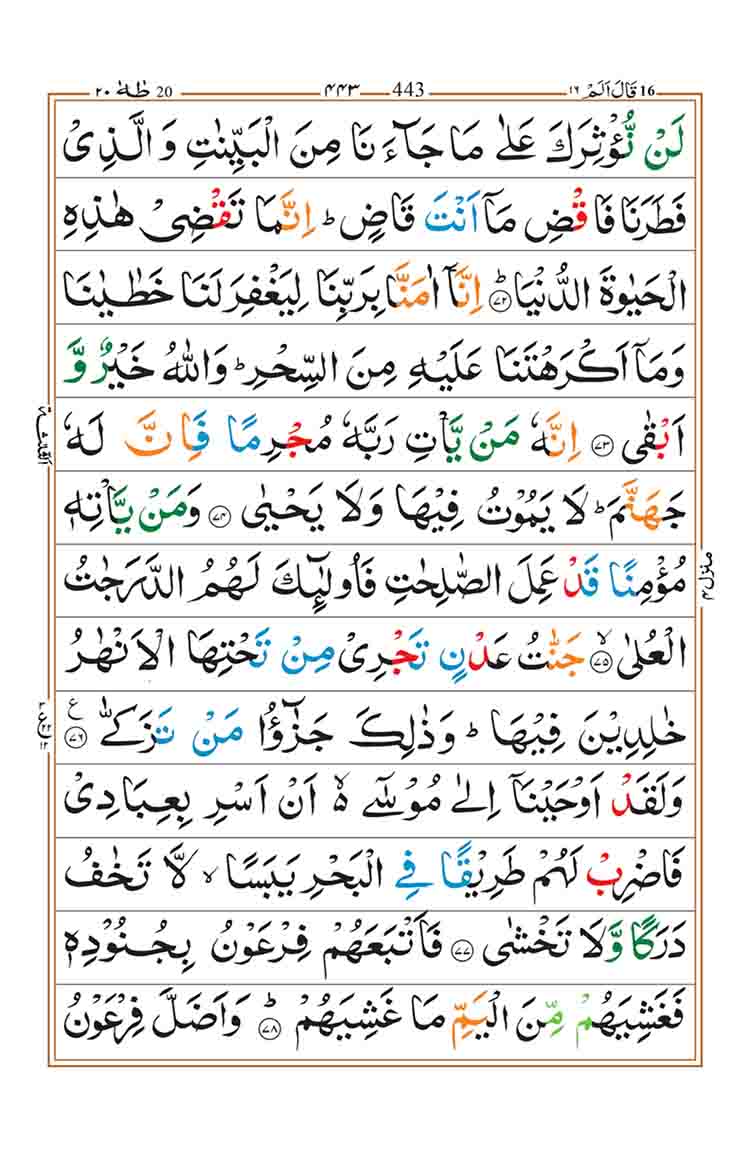 20 طٰهٰ ٢٠ 443 ٤٤٣ 16 قَالَ اَلَمْ ١٦
لَنْ نُّؤْثِرَكَ عَلٰى مَا جَآءَنَا مِنَ الْبَيِّنٰتِ وَالَّذِىْ
فَطَرَنَا فَاقْضِ مَاۤ اَنْتَ قَاضٍ ؕ اِنَّمَا تَقْضِىْ هٰذِهِ
الْحَيٰوةَ الدُّنْيَا ؕ ﴿٧٢﴾ اِنَّاۤ اٰمَنَّا بِرَبِّنَا لِيَغْفِرَ لَنَا خَطٰيٰنَا
وَمَاۤ اَكْرَهْتَنَا عَلَيْهِ مِنَ السِّحْرِ ؕ وَاللّٰهُ خَيْرٌ وَّ
اَبْقٰى ﴿٧٣﴾ اِنَّهٗ مَنْ يَّاْتِ رَبَّهٗ مُجْرِمًا فَاِنَّ لَهٗ
جَهَنَّمَ ؕ لَا يَمُوْتُ فِيْهَا وَلَا يَحْيٰى ﴿٧٤﴾ وَمَنْ يَّاْتِهٖ
مُؤْمِنًا قَدْ عَمِلَ الصّٰلِحٰتِ فَاُولٰٓئِكَ لَهُمُ الدَّرَجٰتُ
الْعُلٰى ۙ ﴿٧٥﴾ جَنّٰتُ عَدْنٍ تَجْرِىْ مِنْ تَحْتِهَا الْاَنْهٰرُ
خٰلِدِيْنَ فِيْهَا ؕ وَذٰلِكَ جَزٰٓؤُا مَنْ تَزَكّٰى ﴿٧٦﴾ ع
وَلَقَدْ اَوْحَيْنَاۤ اِلٰى مُوْسٰٓى ۙ اَنْ اَسْرِ بِعِبَادِىْ
فَاضْرِبْ لَهُمْ طَرِيْقًا فِى الْبَحْرِ يَبَسًا ۙ لَّا تَخٰفُ
دَرَكًا وَّلَا تَخْشٰى ﴿٧٧﴾ فَاَتْبَعَهُمْ فِرْعَوْنُ بِجُنُوْدِهٖ
فَغَشِيَهُمْ مِّنَ الْيَمِّ مَا غَشِيَهُمْ ؕ ﴿٧٨﴾ وَاَضَلَّ فِرْعَوْنُ
منزل ٤